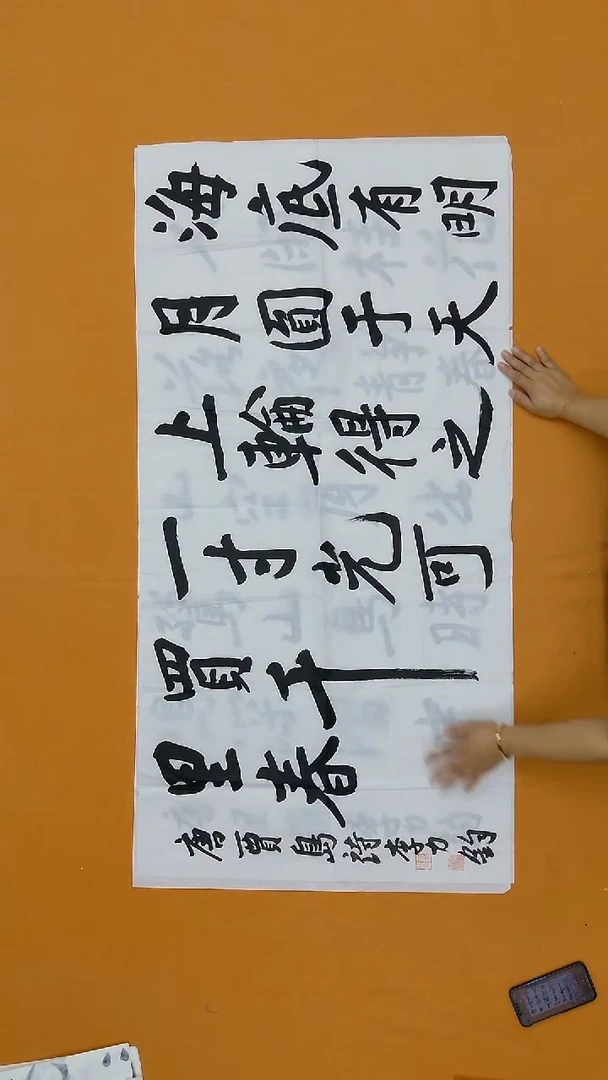 海底有明
月圓于天
上輪得之
一寸光可
買千
里春
唐賈島詩李力鈞